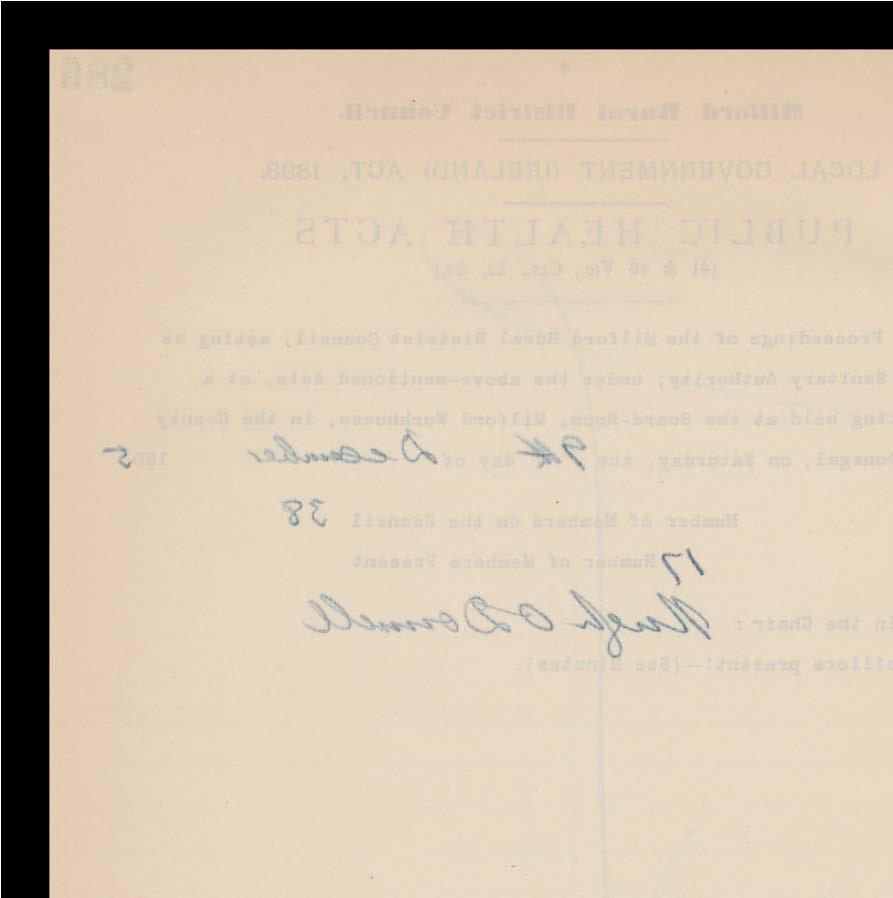 285
Milford Rural District Council.
LOCAL GOVERNMENT (IRELAND) ACT, 1898.
PUBLIC HEALTH ACTS
(41 & Vic., Cap. 52, &c.)
Proceedings of the Milford Rural District Council, acting as
Sanitary Authority, under the above-mentioned Acts, at a
ting held at the Board-Room, Milford Workhouse, in the County
Donegal, on Saturday, the 9th day of December 1905
Number of Members on the Council 38
Number of Members Present 17
in the Chair: Hugh O Donnell
cillors present:—(See Minutes).